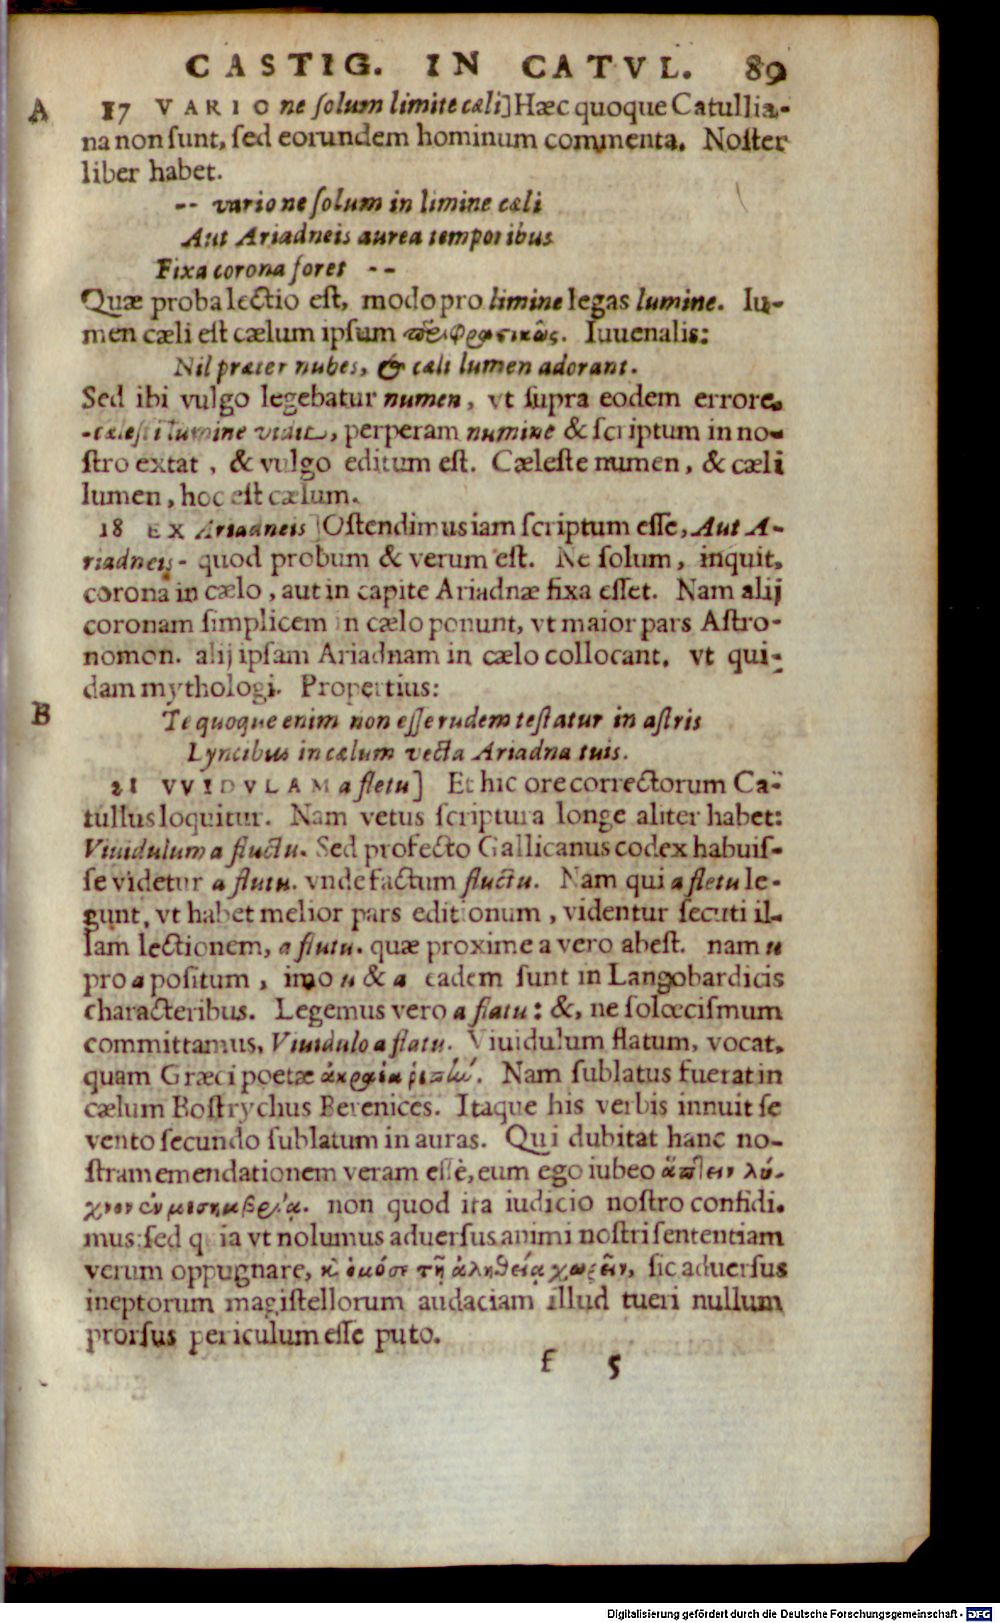 CASTIG. IN CATVL. 89
A 17 VARIO ne ſolum limite cæli] Hæc quoque Catullia-
na non ſunt, ſed eorundem hominum commenta. Noſter
liber habet.
-- vario ne ſolum in limine cæli
Aut Ariadneis aurea temporibus
Fixa corona foret --
Quæ proba lectio eſt, modo pro limine legas lumine. lu-
men cæli eſt cælum ipſum περιφραστικῶς. Iuuenalis:
Nil præter nubes, & cæli lumen adorant.
Sed ibi vulgo legebatur numen, vt ſupra eodem errore.
-cæleſti lumine vidit, perperam numine & ſcriptum in no-
ſtro extat, & vulgo editum eſt. Cæleſte numen, & cæli
lumen, hoc eſt cælum.
18 EX Ariadneis] Oſtendimus iam ſcriptum eſſe, Aut A-
riadneis- quod probum & verum eſt. Ne ſolum, inquit,
corona in cælo, aut in capite Ariadnæ fixa eſſet. Nam alij
coronam ſimplicem in cælo ponunt, vt maior pars Aſtro-
nomon. alij ipſam Ariadnam in cælo collocant. vt qui-
dam mythologi. Propertius:
B Te quoque enim non eſſe rudem teſtatur in aſtris
Lyncibus in cælum vecta Ariadna tuis.
21 VVIDVLAM a fletu] Et hic ore correctorum Ca-
tullus loquitur. Nam vetus ſcriptura longe aliter habet:
Viuidulum a fluctu. Sed profecto Gallicanus codex habuiſ-
ſe videtur a flutu. vnde factum fluctu. Nam qui a fletu le-
gunt, vt habet melior pars editionum, videntur ſecuti il-
lam lectionem, a flutu. quæ proxime a vero abeſt. nam u
pro a poſitum, imo u & a eadem ſunt in Langobardicis
characteribus. Legemus vero a flatu: &, ne ſolœciſmum
committamus, Viuidulo a flatu. Viuidulum flatum, vocat,
quam Græci poetæ ἀκραέα ῥιπὴν. Nam ſublatus fuerat in
cælum Boſtrychus Berenices. Itaque his verbis innuit ſe
vento ſecundo ſublatum in auras. Qui dubitat hanc no-
ſtram emendationem veram eſſe, eum ego iubeo ἅπτειν λύ-
χνον ἐν μεσημβρίᾳ. non quod ita iudicio noſtro confidi-
mus: ſed quia vt nolumus aduerſus animi noſtri ſententiam
verum oppugnare, κ ὁμόσε τῇ ἀληθείᾳ χωρεῖν, ſic aduerſus
ineptorum magiſtellorum audaciam illud tueri nullum
prorſus periculum eſſe puto.
f 5
Digitalisierung gefördert durch die Deutsche Forschungsgemeinschaft - DFG